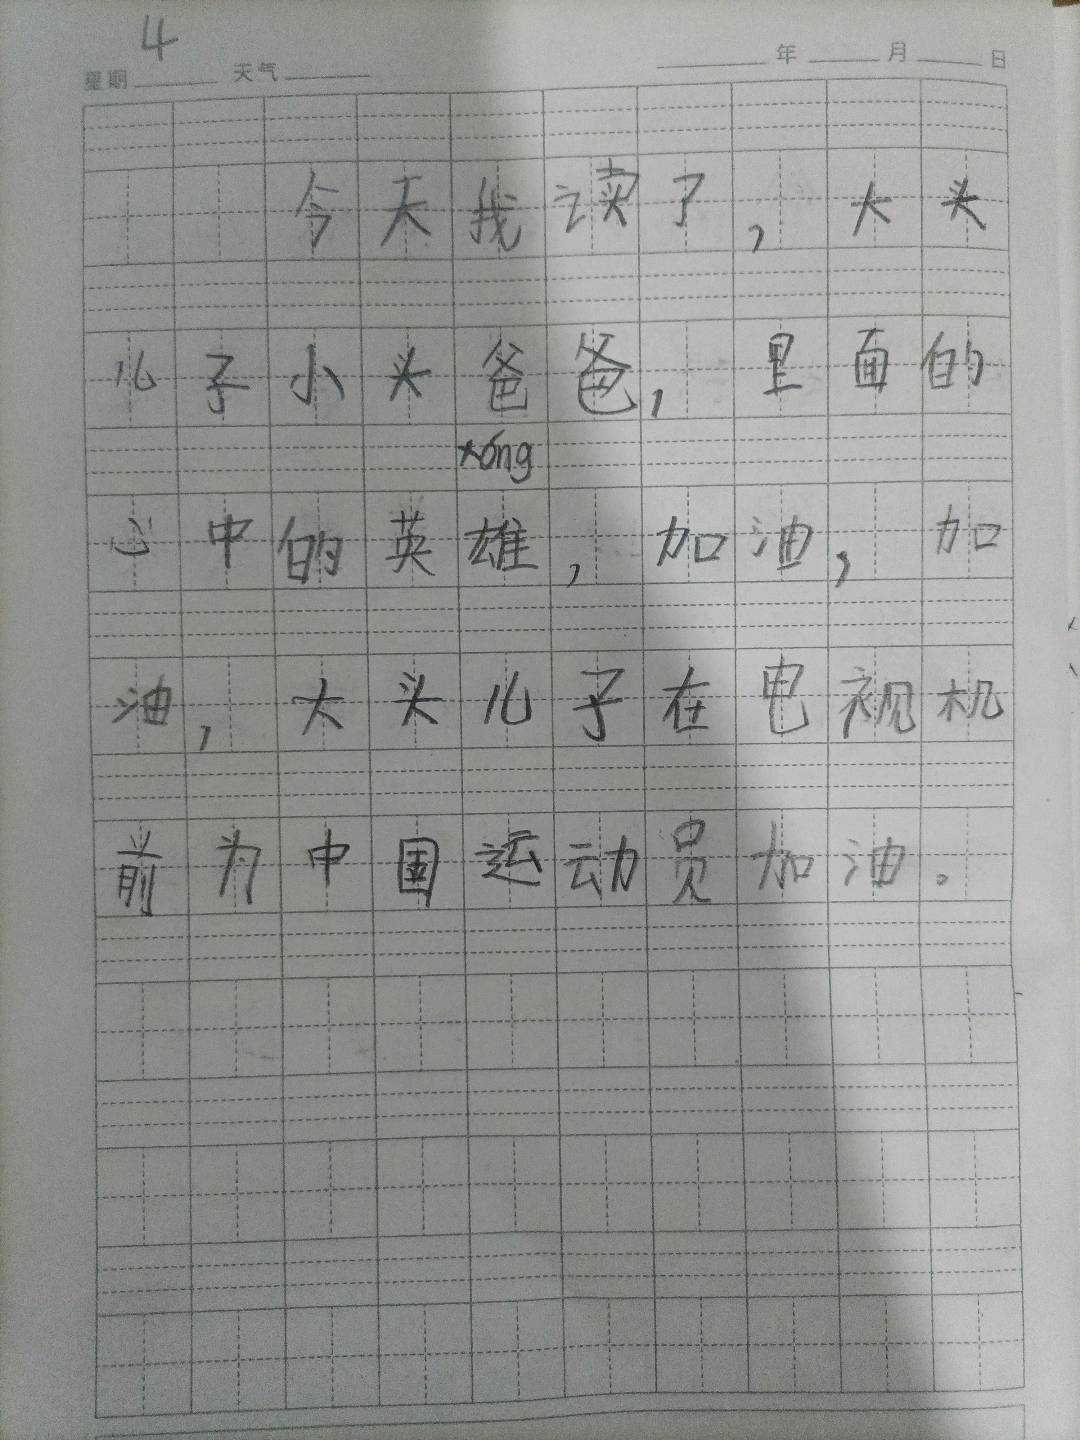 4
星期 天气 年 月 日
今天我读了，大头
儿子小头爸爸，里面的
xóng
心中的英雄，加油，加
油，大头儿子在电视机
前为中国运动员加油。